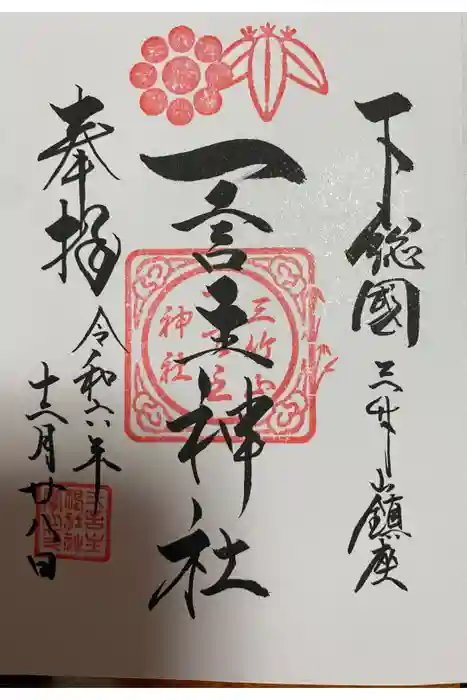 下総國三竹山鎮座
一言主神社
三竹山
一言主
神社
奉拝
令和六年
十二月廿八日